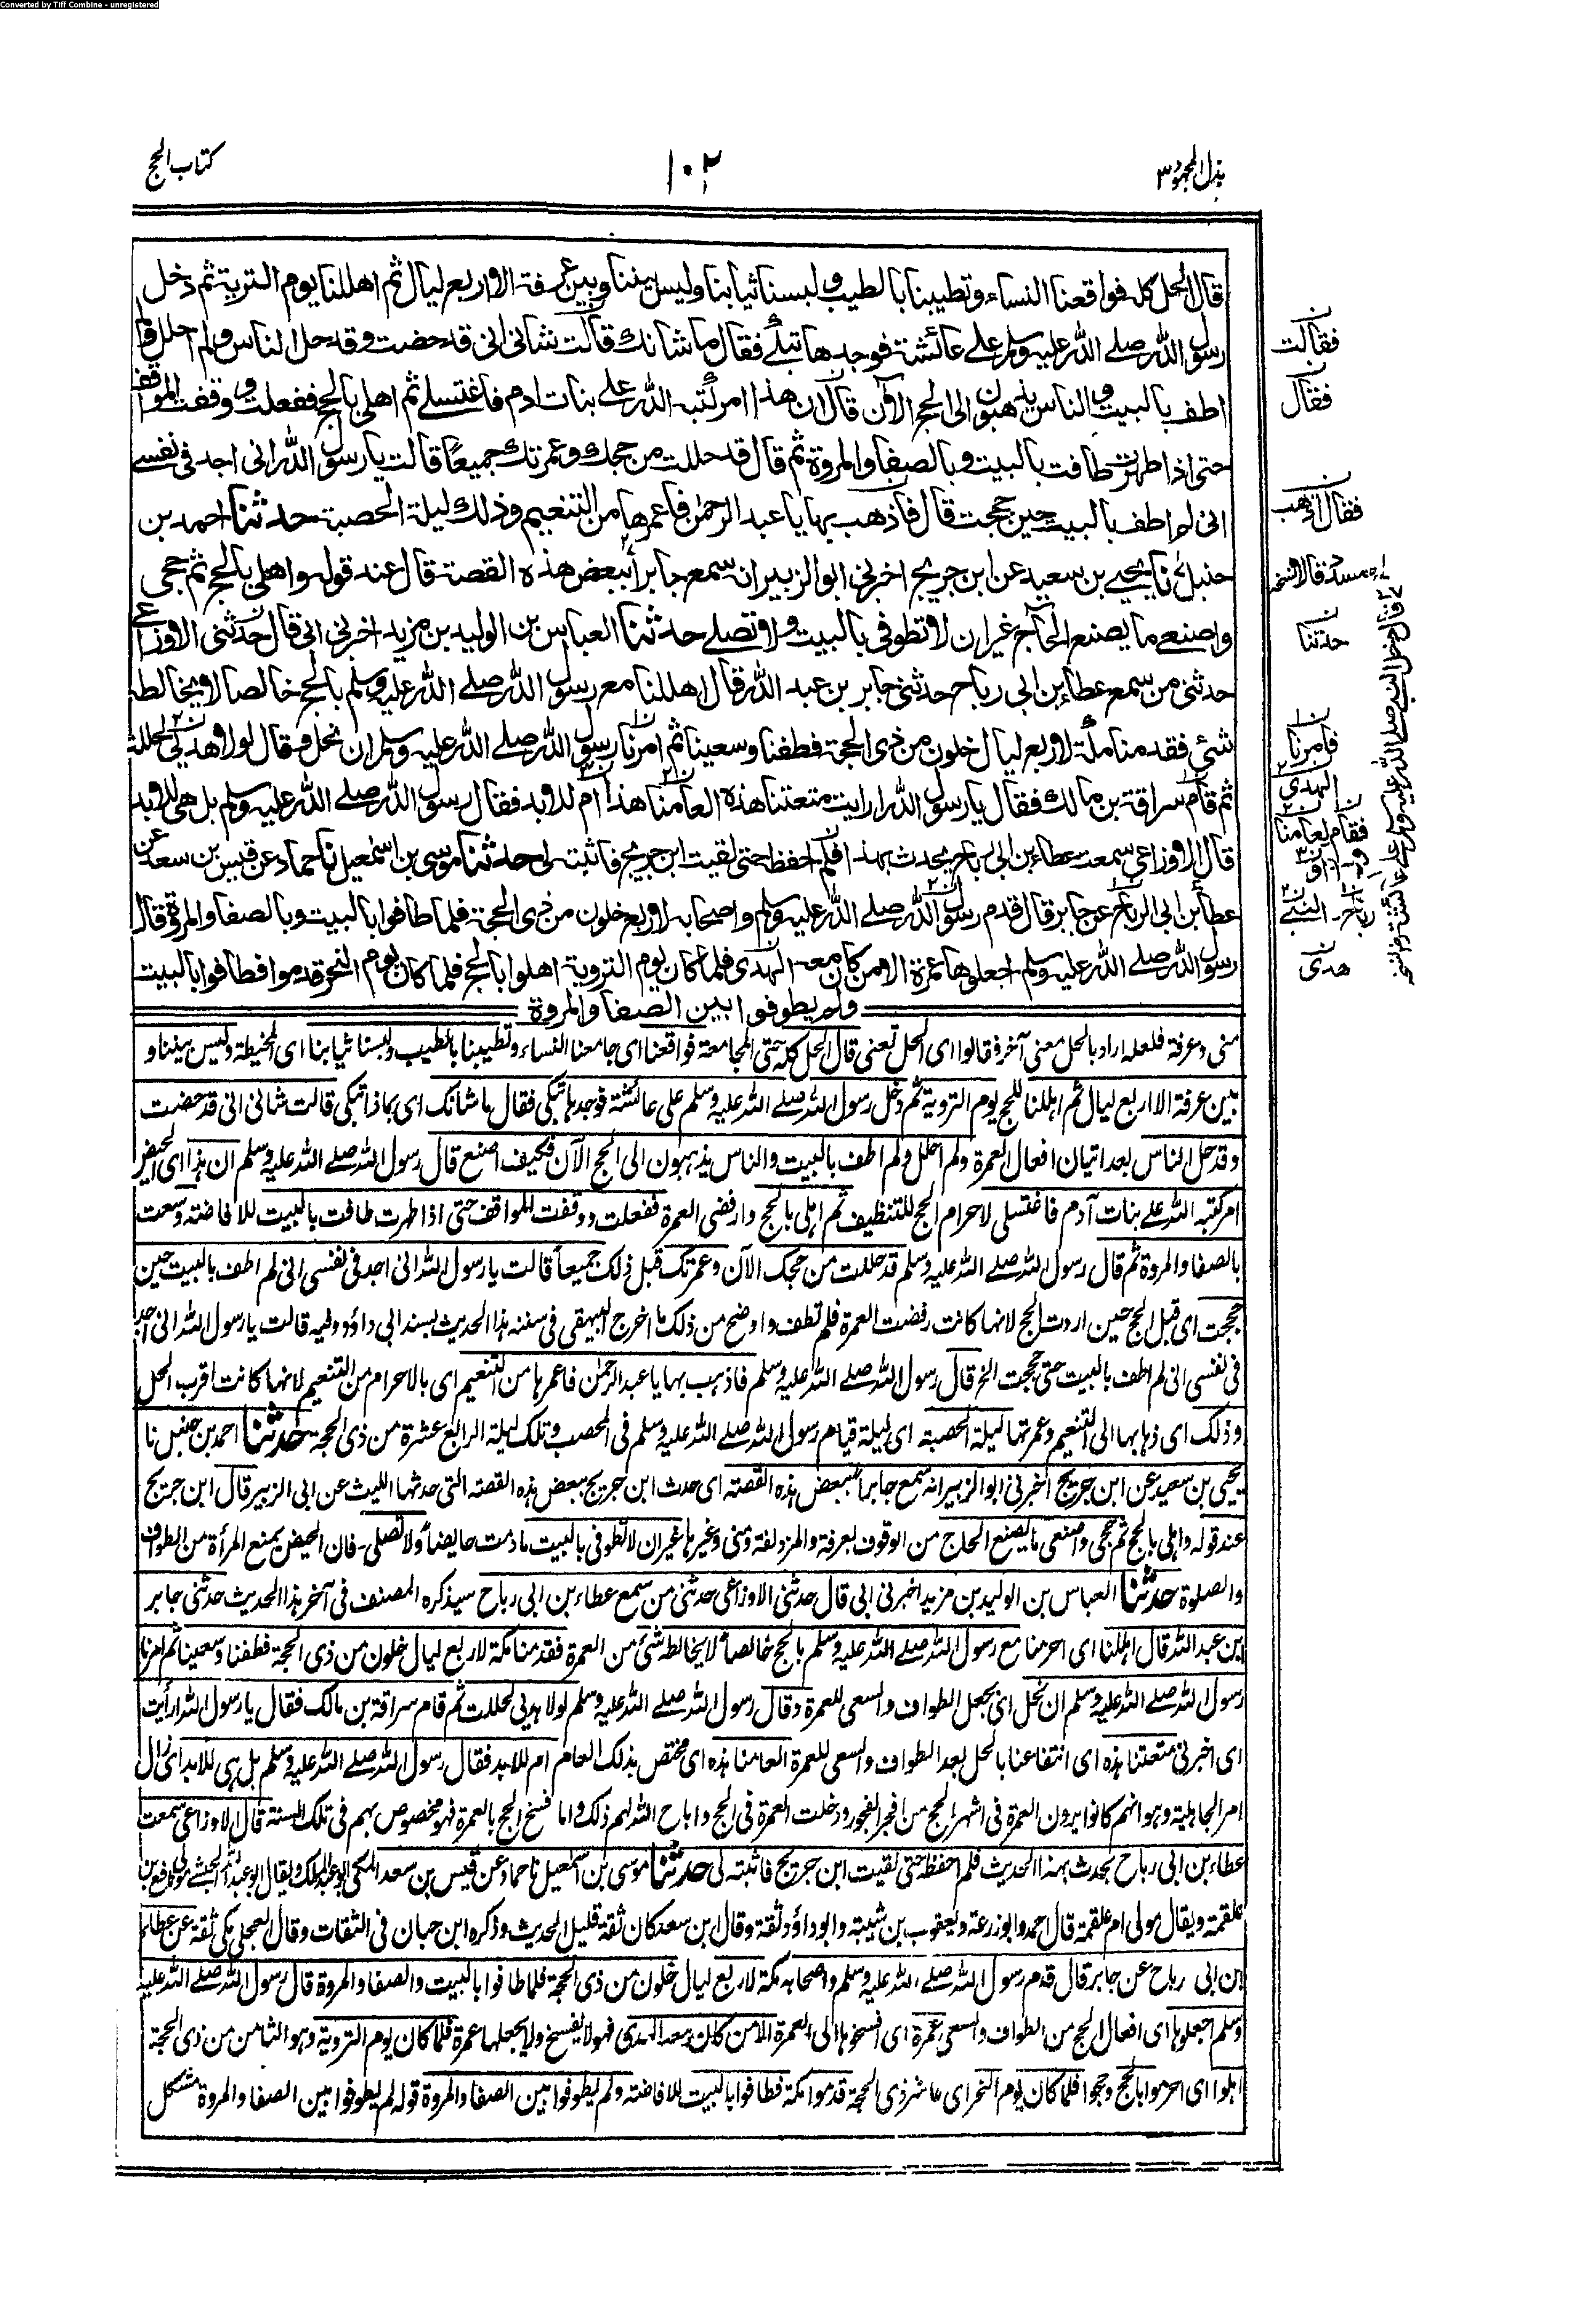 Converted by Tiff Combine - unregistered
بذل المجهود ٣
١٠٢
كتاب الحج
قال الحل كله فواقعنا النساء وتطيبنا بالطيب ولبسنا ثيابنا وليس بيننا وبين عرفة الا اربع ليال ثم اهللنا يوم التروية ثم دخل
رسول الله صلى الله عليه وسلم على عائشة فوجدها تبكي فقال ما شانك قالت شاني اني قد حضت وقد حل الناس ولم احلل ولم
اطف بالبيت والناس يذهبون الى الحج الآن قال ان هذا امر كتبه الله على بنات ادم فاغتسلي ثم اهلي بالحج ففعلت ووقفت المواقف
حتى اذا طهرت طافت بالبيت وبالصفا والمروة ثم قال قد حللت من حجك وعمرتك جميعًا قالت يا رسول الله اني اجد في نفسي
اني لم اطف بالبيت حين حججت قال فاذهب بها يا عبد الرحمٰن فاعمرها من التنعيم وذلك ليلة الحصبة حدثنا احمد بن
حنبل نا يحيى بن سعيد عن ابن جريج اخبرني ابو الزبير انه سمع جابراً ببعض هذه القصة قال عند قوله واهلي بالحج ثم حجي
واصنعي ما يصنع الحاج غير ان لا تطوفي بالبيت ولا تصلي حدثنا العباس بن الوليد بن مزيد اخبرني ابي قال حدثني الاوزاعي
حدثني من سمع عطاء بن ابي رباح حدثني جابر بن عبد الله قال اهللنا مع رسول الله صلى الله عليه وسلم بالحج خالصا لا يخالطه
شئي فقدمنا مكة لاربع ليال خلون من ذي الحجة فطفنا وسعينا ثم امرنا رسول الله صلى الله عليه وسلم ان نحل وقال لولا هديي لحللت
ثم قام سراقة بن مالك فقال يا رسول الله ارايت متعتنا هذه العامنا هذا ام للابد فقال رسول الله صلى الله عليه وسلم بل هي للابد
قال الاوزاعي سمعت عطاء بن ابي رباح يحدث بهذا فلم احفظه حتى لقيت ابن جريج فاثبته لي حدثنا موسى بن اسمعيل نا حماد عن قيس بن سعد عن
عطاء بن ابي الرباح عن جابر قال قدم رسول الله صلى الله عليه وسلم واصحابه لاربع خلون من ذي الحجة فلما طافوا بالبيت وبالصفا والمروة قال
رسول الله صلى الله عليه وسلم اجعلوها عمرة الا من كان معه الهدي فلما كان يوم التروية اهلوا بالحج فلما كان يوم النحر قدموا فطافوا بالبيت
ولم يطوفوا بين الصفا والمروة
فقالت
فقال
فقال اذهب
حدثنا
فامرنا
الهدي
فقام
لعامنا
رباح - النبي
هدي
منى وعرفة فلعله اراد بالحل معنى آخر فقالوا اي الحل تعني قال الحل كله حتى المجامعة فواقعنا اي جامعنا النساء وتطيبنا بالطيب ولبسنا ثيابنا اي المخيطة وليس بيننا و
بين عرفة الا اربع ليال ثم اهللنا للحج يوم التروية ثم دخل رسول الله صلى الله عليه وسلم على عائشة فوجدها تبكي فقال ما شانك اي بماذا تبكي قالت شاني اني قد حضت
وقد حل الناس بعد اتيان افعال العمرة ولم احلل ولم اطف بالبيت والناس يذهبون الى الحج الآن فكيف اصنع قال رسول الله صلى الله عليه وسلم ان هذا اي الحيض
امر كتبه الله على بنات آدم فاغتسلي لاحرام الحج للتنظيف ثم اهلي بالحج وارفضي العمرة ففعلت ووقفت المواقف حتى اذا طهرت طافت بالبيت للافاضة وسعت
بالصفا والمروة ثم قال رسول الله صلى الله عليه وسلم قد حللت من حجك الآن وعمرتك قبل ذلك جميعاً قالت يا رسول الله اني اجد في نفسي اني لم اطف بالبيت حين
حججت اي قبل الحج حين اردت الحج لانها كانت رفضت العمرة فلم تطف واوضح من ذلك ما اخرج البيهقي في سننه هذا الحديث بسند ابي داؤد وفيه قالت يا رسول الله اني اجد
في نفسي اني لم اطف بالبيت حتى حججت الخ قال رسول الله صلى الله عليه وسلم فاذهب بها يا عبد الرحمٰن فاعمرها من التنعيم اي بالاحرام من التنعيم لانها كانت اقرب الحل
وذلك اي ذهابها الى التنعيم وعمرتها ليلة الحصبة اي ليلة قيامهم رسول الله صلى الله عليه وسلم في المحصب وتلك ليلة الرابع عشرة من ذي الحجة حدثنا احمد بن حنبل نا
يحيى بن سعيد عن ابن جريج اخبرني ابو الزبير انه سمع جابراً ببعض هذه القصة اي حدث ابن جريج ببعض هذه القصة التي حدثها الليث عن ابي الزبير قال ابن جريج
عند قوله واهلي بالحج ثم حجي واصنعي ما يصنع الحاج من الوقوف بعرفة والمزدلفة ومنى وغيرها غير ان لا تطوفي بالبيت ما دمت حايضاً ولا تصلي - فان الحيض يمنع المرأة من الطواف
والصلوة حدثنا العباس بن الوليد بن مزيد اخبرني ابي قال حدثني الاوزاعي حدثني من سمع عطاء بن ابي رباح سيذكره المصنف في آخر هذا الحديث حدثني جابر
ابن عبد الله قال اهللنا اي احرمنا مع رسول الله صلى الله عليه وسلم بالحج خالصاً لا يخالطه شئ من العمرة فقدمنا مكة لاربع ليال خلون من ذي الحجة فطفنا وسعينا ثم امرنا
رسول الله صلى الله عليه وسلم ان نحل اي بجعل الطواف والسعي للعمرة وقال رسول الله صلى الله عليه وسلم لولا هديي لحللت ثم قام سراقة بن مالك فقال يا رسول الله ارأيت
اي اخبرني متعتنا هذه اي انتفاعنا بالحل بعد الطواف والسعي للعمرة العامنا هذه اي مختص بذلك العام ام للابد فقال رسول الله صلى الله عليه وسلم بل هي للابد اي زال
امر الجاهلية وهو انهم كانوا يرون العمرة في اشهر الحج من افجر الفجور ودخلت العمرة في الحج واباح الله لهم ذلك واما فسخ الحج بالعمرة فهو مخصوص بهم في تلك السنة قال الاوزاعي سمعت
عطاء بن ابي رباح يحدث بهذا الحديث فلم احفظه حتى لقيت ابن جريج فاثبته لي حدثنا موسى بن اسمعيل نا حماد عن قيس بن سعد المكي ابو عبد الملك ويقال ابو عبد الله الحبشي مولى نافع بن
علقمة ويقال مولى ام علقمة قال احمد وابو زرعة ويعقوب بن شيبة وابو داؤد ثقة وقال ابن سعد كان ثقة قليل الحديث وذكره ابن حبان في الثقات وقال العجلي مكي ثقة عن عطاء
ابن ابي رباح عن جابر قال قدم رسول الله صلى الله عليه وسلم واصحابه مكة لاربع ليال خلون من ذي الحجة فلما طافوا بالبيت والصفا والمروة قال رسول الله صلى الله عليه
وسلم اجعلوها اي افعال الحج من الطواف والسعي عمرة اي افسخوها الى العمرة الا من كان معه الهدي فهو لا يفسخ ولا يجعلها عمرة فلما كان يوم التروية وهو الثامن من ذي الحجة
اهلوا اي احرموا بالحج وحجوا فلما كان يوم النحر اي عاشر ذي الحجة قدموا مكة فطافوا بالبيت للافاضة ولم يطوفوا بين الصفا والمروة قوله لم يطوفوا بين الصفا والمروة مشكل